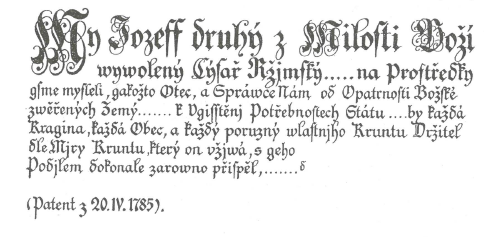 My Jozeff druhý z Milosti Boží
wywolený Cýsař Ržjmský.....na Prostředky
gsme mysleli, gakožto Otec, a Spráwce Nám od Opatrnosti Božské
zwěřených Zemý....... k Vgisstěnj Potřebnostech Státu ....by každá
Kragina, každá Obec, a každý poruzný wlastnjho Kruntu Držitel
dle Mjry Kruntu, který on vžjwá, s geho
Podjlem dokonale zarowno přispěl,.......
(Patent z 20. IV. 1785).